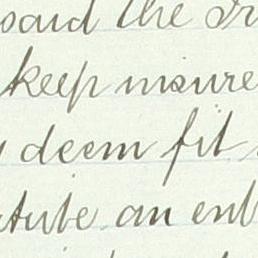 said the Tr
keep insure
deem fit
tute an enl